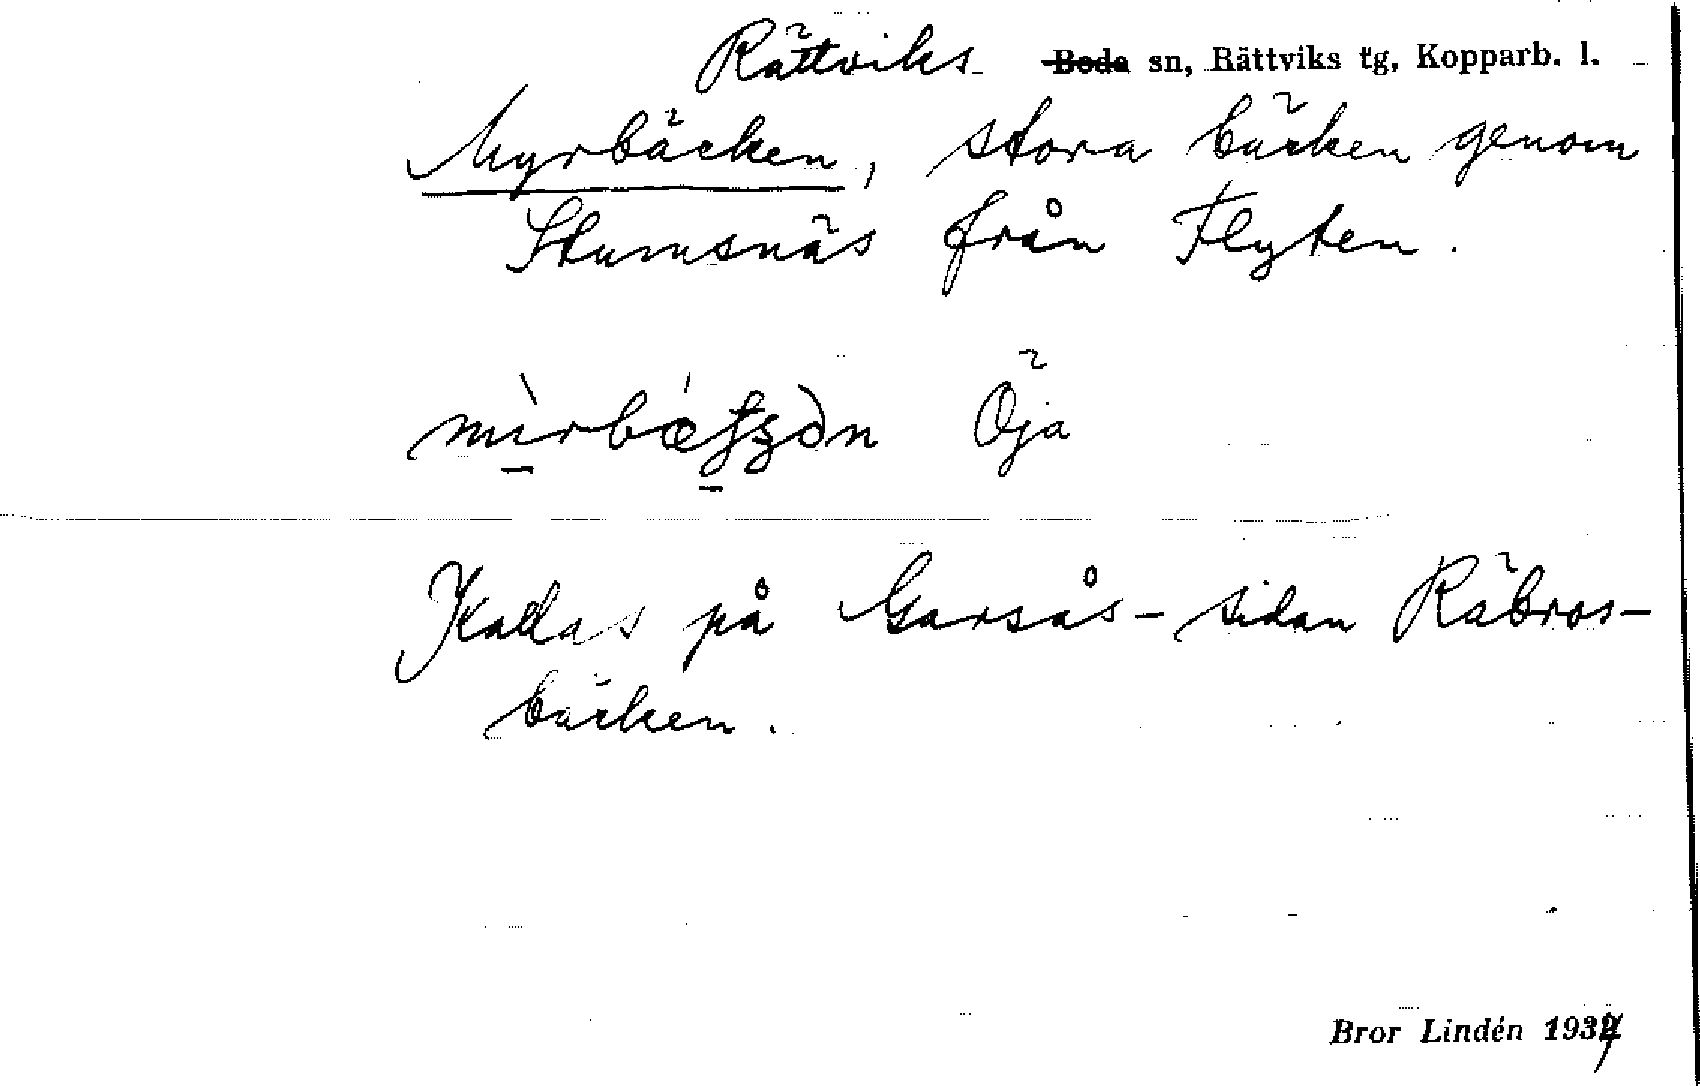 Rättviks ~~Boda~~ sn, Rättviks tg, Kopparb. l.
Myrbäcken, stora bäcken genom
Stumsnäs från Flyten.
Öja
Kallas på Garsås-sidan Räbros-
bäcken.
Bror Lindén 1937